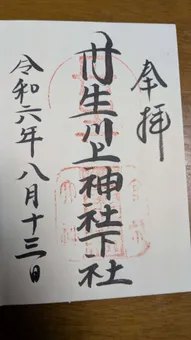 奉拝
丹生川上神社下社
令和六年八月十三日